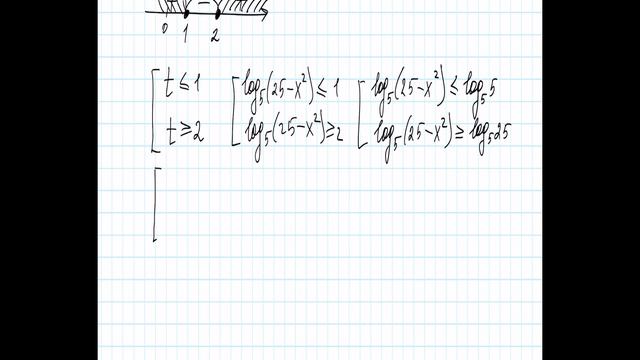 0 1 2
t ≤ 1 log₅(25−x²) ≤ 1 log₅(25−x²) ≤ log₅5
t ≥ 2 log₅(25−x²) ≥ 2 log₅(25−x²) ≥ log₅25